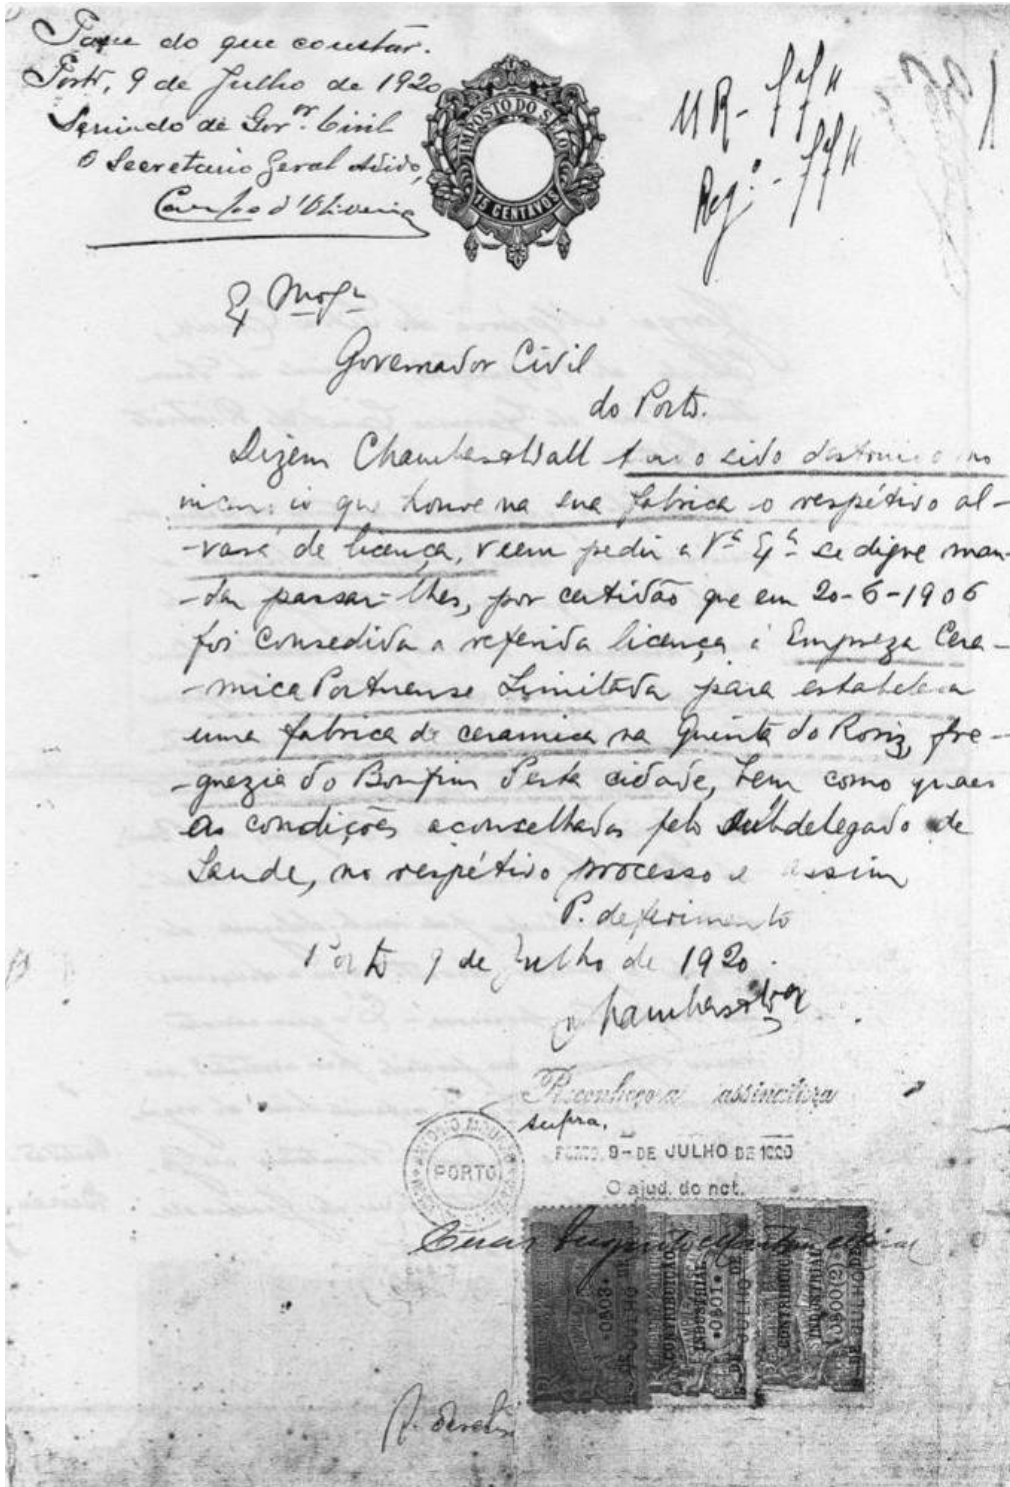 Passe do que constar.
Porto, 9 de Julho de 1920
Servindo de Gov.or Civil
O Secretario Geral
IMPOSTO DO SELO
15 CENTAVOS
Governador Civil
do Porto.
Dizem Chambers & Wall tendo sido destruido no
incendio que houve na sua fabrica o respétivo al-
-vará de licença, veem pedir a V.ª Ex.ª se digne man-
-dar passar-lhes, por certidão que em 20-6-1906
foi consedida a referida licença á Empreza Cera-
-mica Portuense Limitada para estabelecer
uma fabrica de ceramica na Quinta do Roriz, fre-
-guezia do Bomfim desta cidade, bem como quaes
as condições aconselhadas pelo subdelegado de
Saude, no respétivo processo e assim
P. deferimento
Porto 9 de Julho de 1920.
Chambers & Wall
Reconheço a assinatura
supra.
PORTO, 9- DE JULHO DE 1920
PORTO
O ajud. do not.
*0803*
CONTRIBUIÇÃO
INDUSTRIAL
*0801*
DE JULHO DE
CONTRIBUIÇÃO
INDUSTRIAL
0800(2)
DE JULHO DE